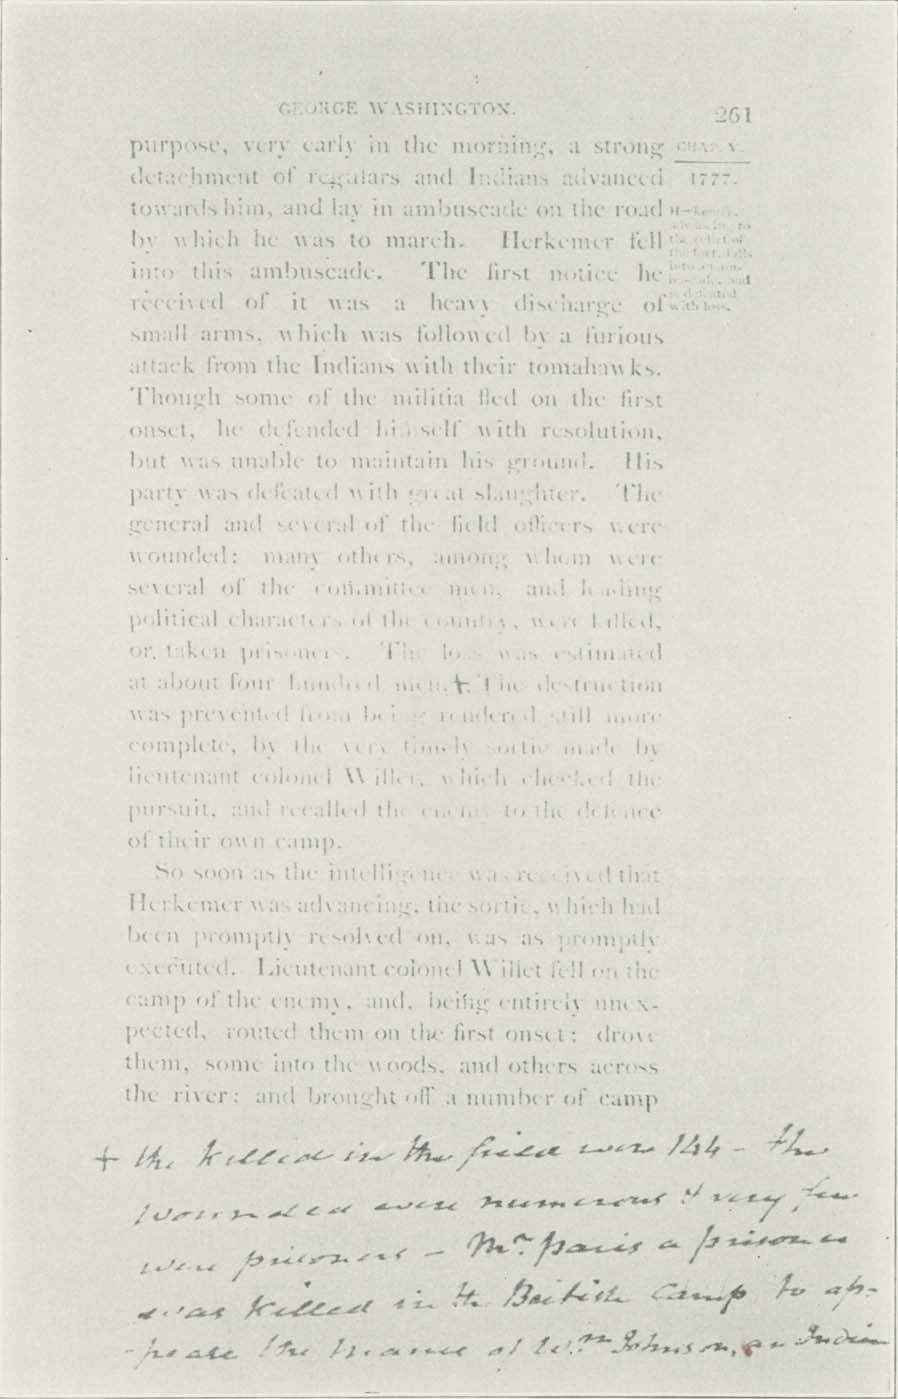 GEORGE WASHINGTON.
261
purpose, very early in the morning, a strong
detachment of regulars and Indians advanced
towards him, and lay in ambuscade on the road
by which he was to march. Herkemer fell
into this ambuscade. The first notice he
received of it was a heavy discharge of
small arms, which was followed by a furious
attack from the Indians with their tomahawks.
Though some of the militia fled on the first
onset, he defended himself with resolution,
but was unable to maintain his ground. His
party was defeated with great slaughter. The
general and several of the field officers were
wounded; many others, among whom were
several of the committee men, and leading
political characters of the country, were killed,
or taken prisoners. The loss was estimated
at about four hundred men.+ The destruction
was prevented from being rendered still more
complete, by the very timely sortie made by
lieutenant colonel Willet, which checked the
pursuit, and recalled the enemy to the defence
of their own camp.
So soon as the intelligence was received that
Herkemer was advancing, the sortie, which had
been promptly resolved on, was as promptly
executed. Lieutenant colonel Willet fell on the
camp of the enemy, and, being entirely unex-
pected, routed them on the first onset; drove
them, some into the woods, and others across
the river; and brought off a number of camp
CHAP. V.
1777.
Herkemer,
advancing to
the relief of
the fort, falls
into an am-
buscade, and
is defeated
with loss.
+ the killed in the field were 144 - the
wounded were numerous & very few
were prisoners - Mr. paris a prisoner
was killed in the British Camp to ap-
-pease the manes of Wm Johnson, an Indian